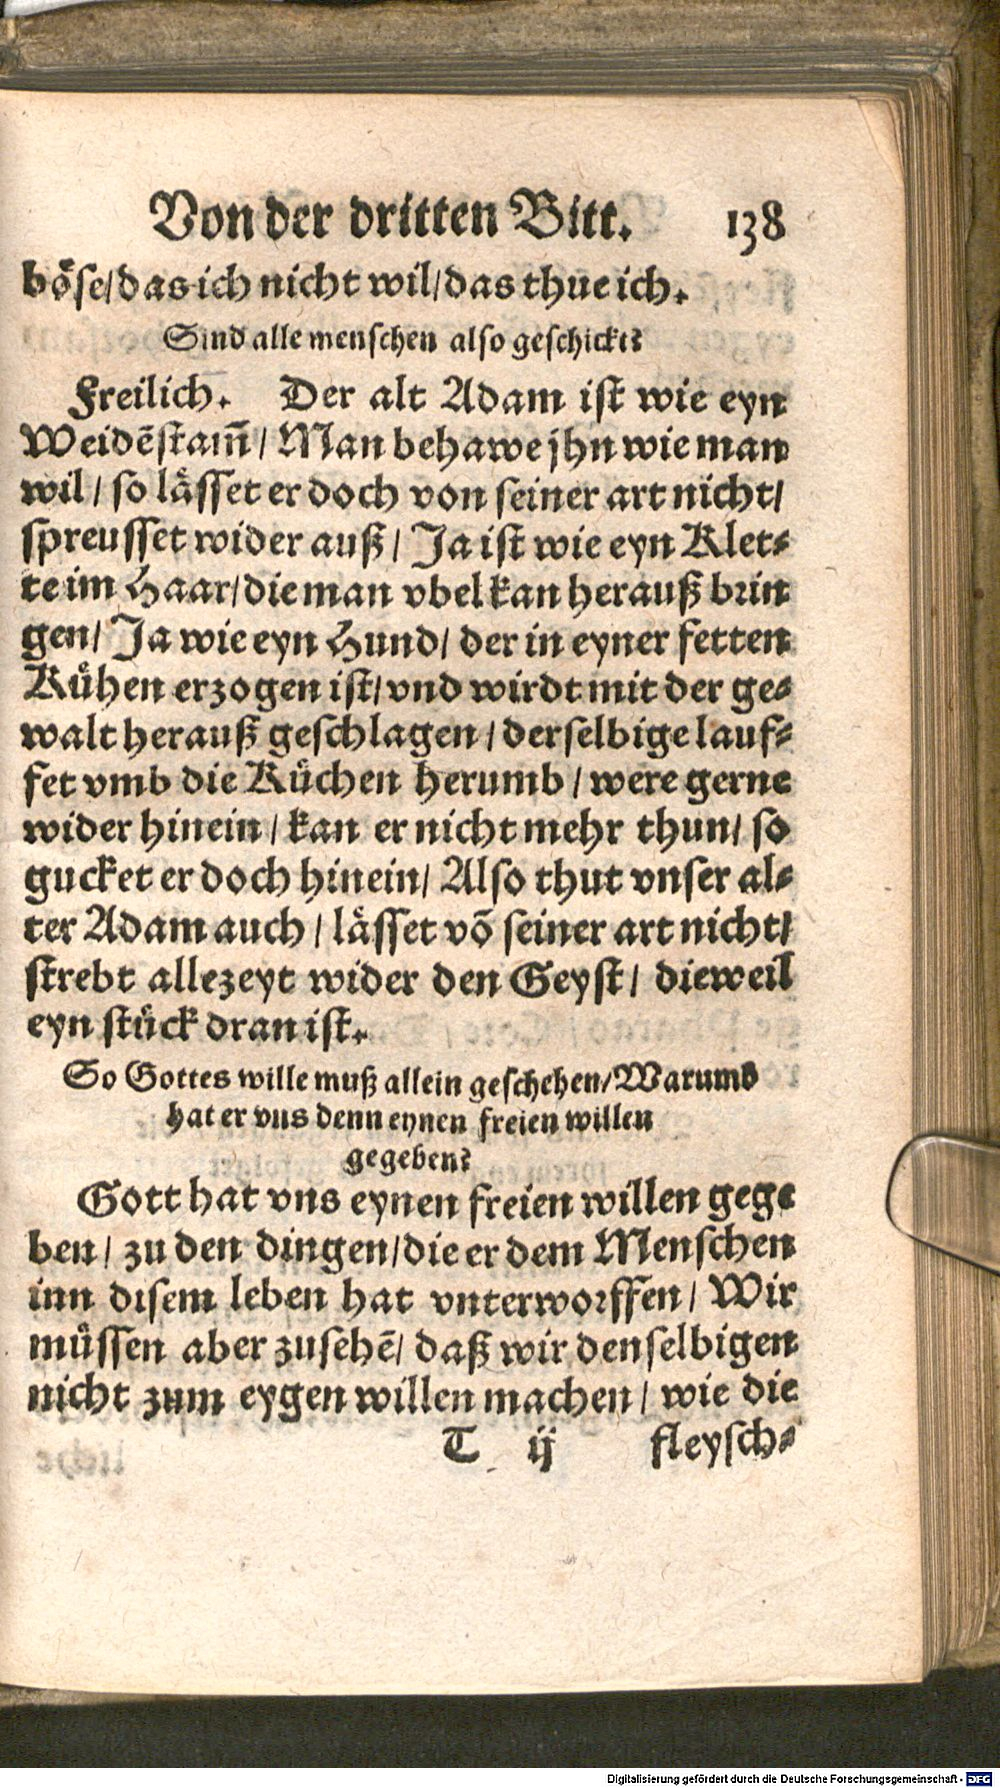 Von der dritten Bitt. 138
böse/das ich nicht wil/das thue ich.
Sind alle menschen also geschickt?
Freilich. Der alt Adam ist wie eyn
Weidēstam̄/ Man behawe jhn wie man
wil/ so lässet er doch von seiner art nicht/
spreusset wider auß/ Ja ist wie eyn Klet-
te im Haar/die man vbel kan herauß brin
gen/ Ja wie eyn Hund/ der in eyner fetten
Kůhen erzogen ist/vnd wirdt mit der ge-
walt herauß geschlagen/ derselbige lauf-
fet vmb die Kůchen herumb/ were gerne
wider hinein/ kan er nicht mehr thun/ so
gucket er doch hinein/ Also thut vnser al-
ter Adam auch/ lässet võ seiner art nicht/
strebt allezeyt wider den Geyst/ dieweil
eyn stück dran ist.
So Gottes wille muß allein geschehen/Warumb
hat er vns denn eynen freien willen
gegeben?
Gott hat vns eynen freien willen gege
ben/ zu den dingen/die er dem Menschen
inn disem leben hat vnterworffen/ Wir
müssen aber zusehē/ daß wir denselbigen
nicht zum eygen willen machen/ wie die
T ij fleysch-
Digitalisierung gefördert durch die Deutsche Forschungsgemeinschaft - DFG